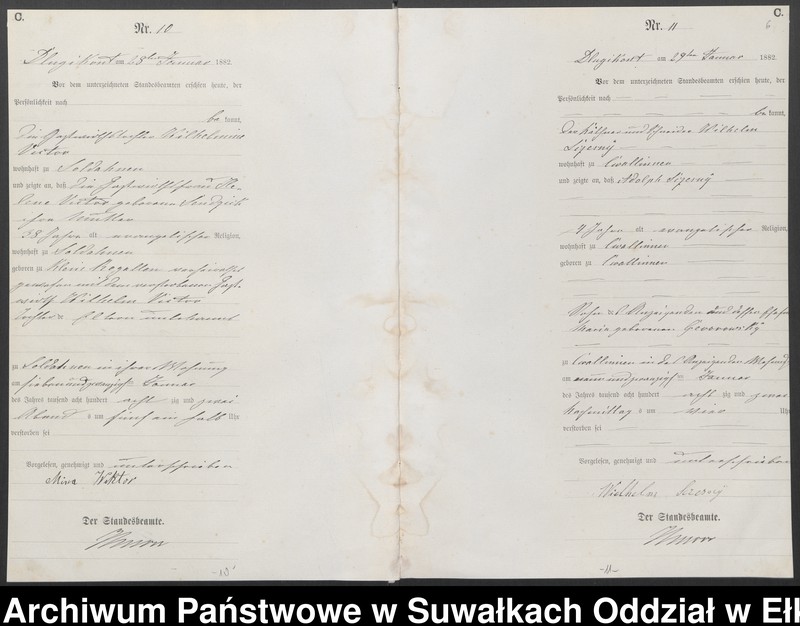 C.
Nr. 10
Dlugikont am 28ten Januar 1882.
Vor dem unterzeichneten Standesbeamten erschien heute, der
Persönlichkeit nach
be kannt,
die Gastwirthstochter Wilhelmine
Victor
wohnhaft zu Soldahnen
und zeigte an, daß die Gastwirthsfrau He-
lene Victor geborene Sendzick
ihre Mutter
58 Jahre alt evangelischer Religion,
wohnhaft zu Soldahnen
geboren zu Klein Rogallen verheirathet
gewesen mit dem verstorbenen Gast-
wirth Wilhelm Victor
Tochter Eltern unbekannt
zu Soldahnen in ihrer Wohnung
am siebenundzwanzigsten Januar
des Jahres tausend acht hundert acht zig und zwei
Abend s um fünf ein halb Uhr
verstorben sei
Vorgelesen, genehmigt und unterschrieben
Mina Wiktor
Der Standesbeamte.
-10-
C.
6
Nr. 11
Dlugikont am 29ten Januar 1882
Vor dem unterzeichneten Standesbeamten erschien heute, der
Persönlichkeit nach
be kannt,
der Käthner und Schneider Wilhelm
wohnhaft zu Cwallinnen
und zeigte an, daß Adolph
4 Jahre alt evangelischer Religion,
wohnhaft zu Cwallinnen
geboren zu Cwallinnen
Sohn des Anzeigenden und dessen Ehefrau
Maria geborenen
zu Cwallinnen in des Anzeigenden Wohnung
am neunundzwanzigsten Januar
des Jahres tausend acht hundert acht zig und zwei
Nachmittag s um vier Uhr
verstorben sei
Vorgelesen, genehmigt und unterschrieben
Wilhelm
Der Standesbeamte.
-11-
Archiwum Państwowe w Suwałkach Oddział w Ełk